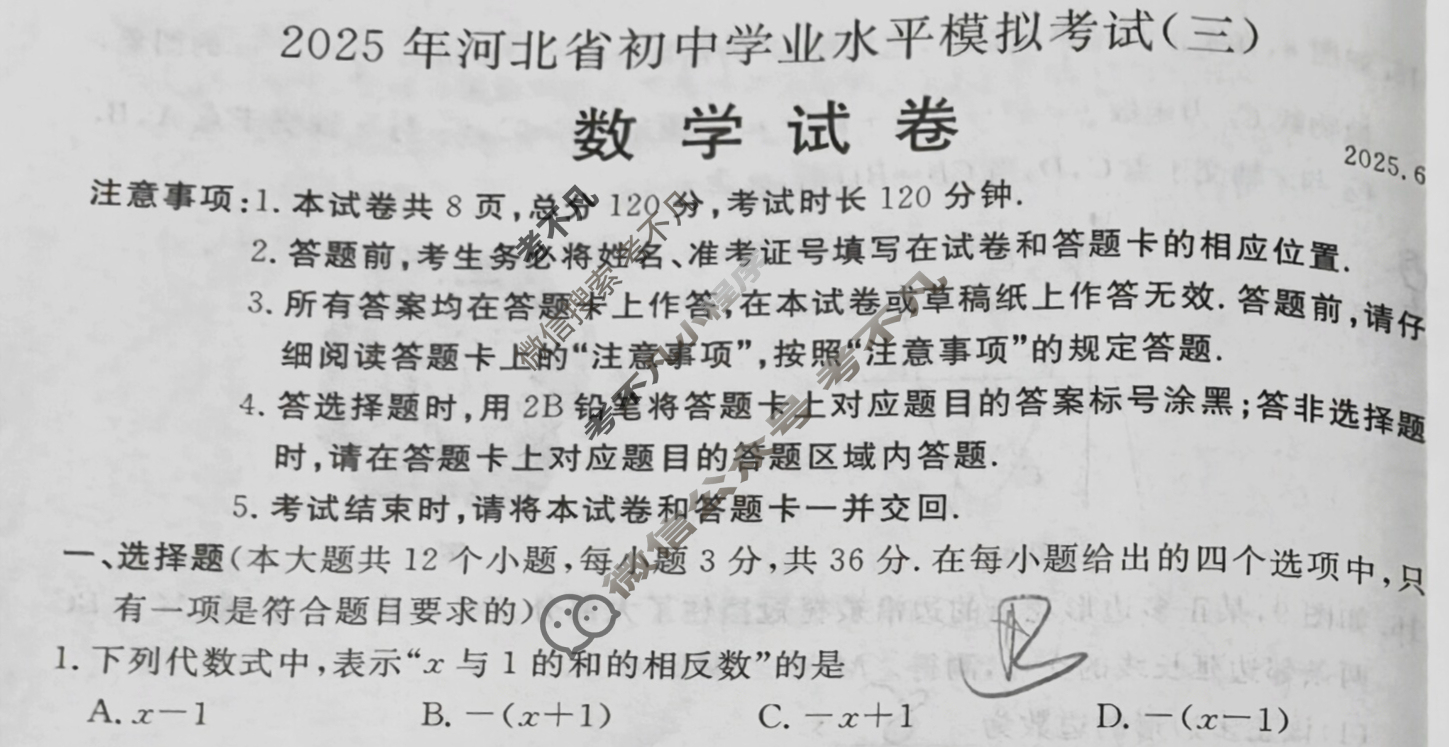 2025年河北省初中学业水平模拟考试(三)
数学试卷
2025.6
注意事项:1.本试卷共8页,总分120分,考试时长120分钟.
2.答题前,考生务必将姓名、准考证号填写在试卷和答题卡的相应位置.
3.所有答案均在答题卡上作答,在本试卷或草稿纸上作答无效.答题前,请仔
细阅读答题卡上的“注意事项”,按照“注意事项”的规定答题.
4.答选择题时,用2B铅笔将答题卡上对应题目的答案标号涂黑;答非选择题
时,请在答题卡上对应题目的答题区域内答题.
5.考试结束时,请将本试卷和答题卡一并交回.
一、选择题(本大题共12个小题,每小题3分,共36分.在每小题给出的四个选项中,只
有一项是符合题目要求的)
1.下列代数式中,表示“x与1的和的相反数”的是
A. x-1 B. -(x+1) C. -x+1 D. -(x-1)
考不凡
微信搜索 考不凡
考不凡小程序
微信公众号 考不凡